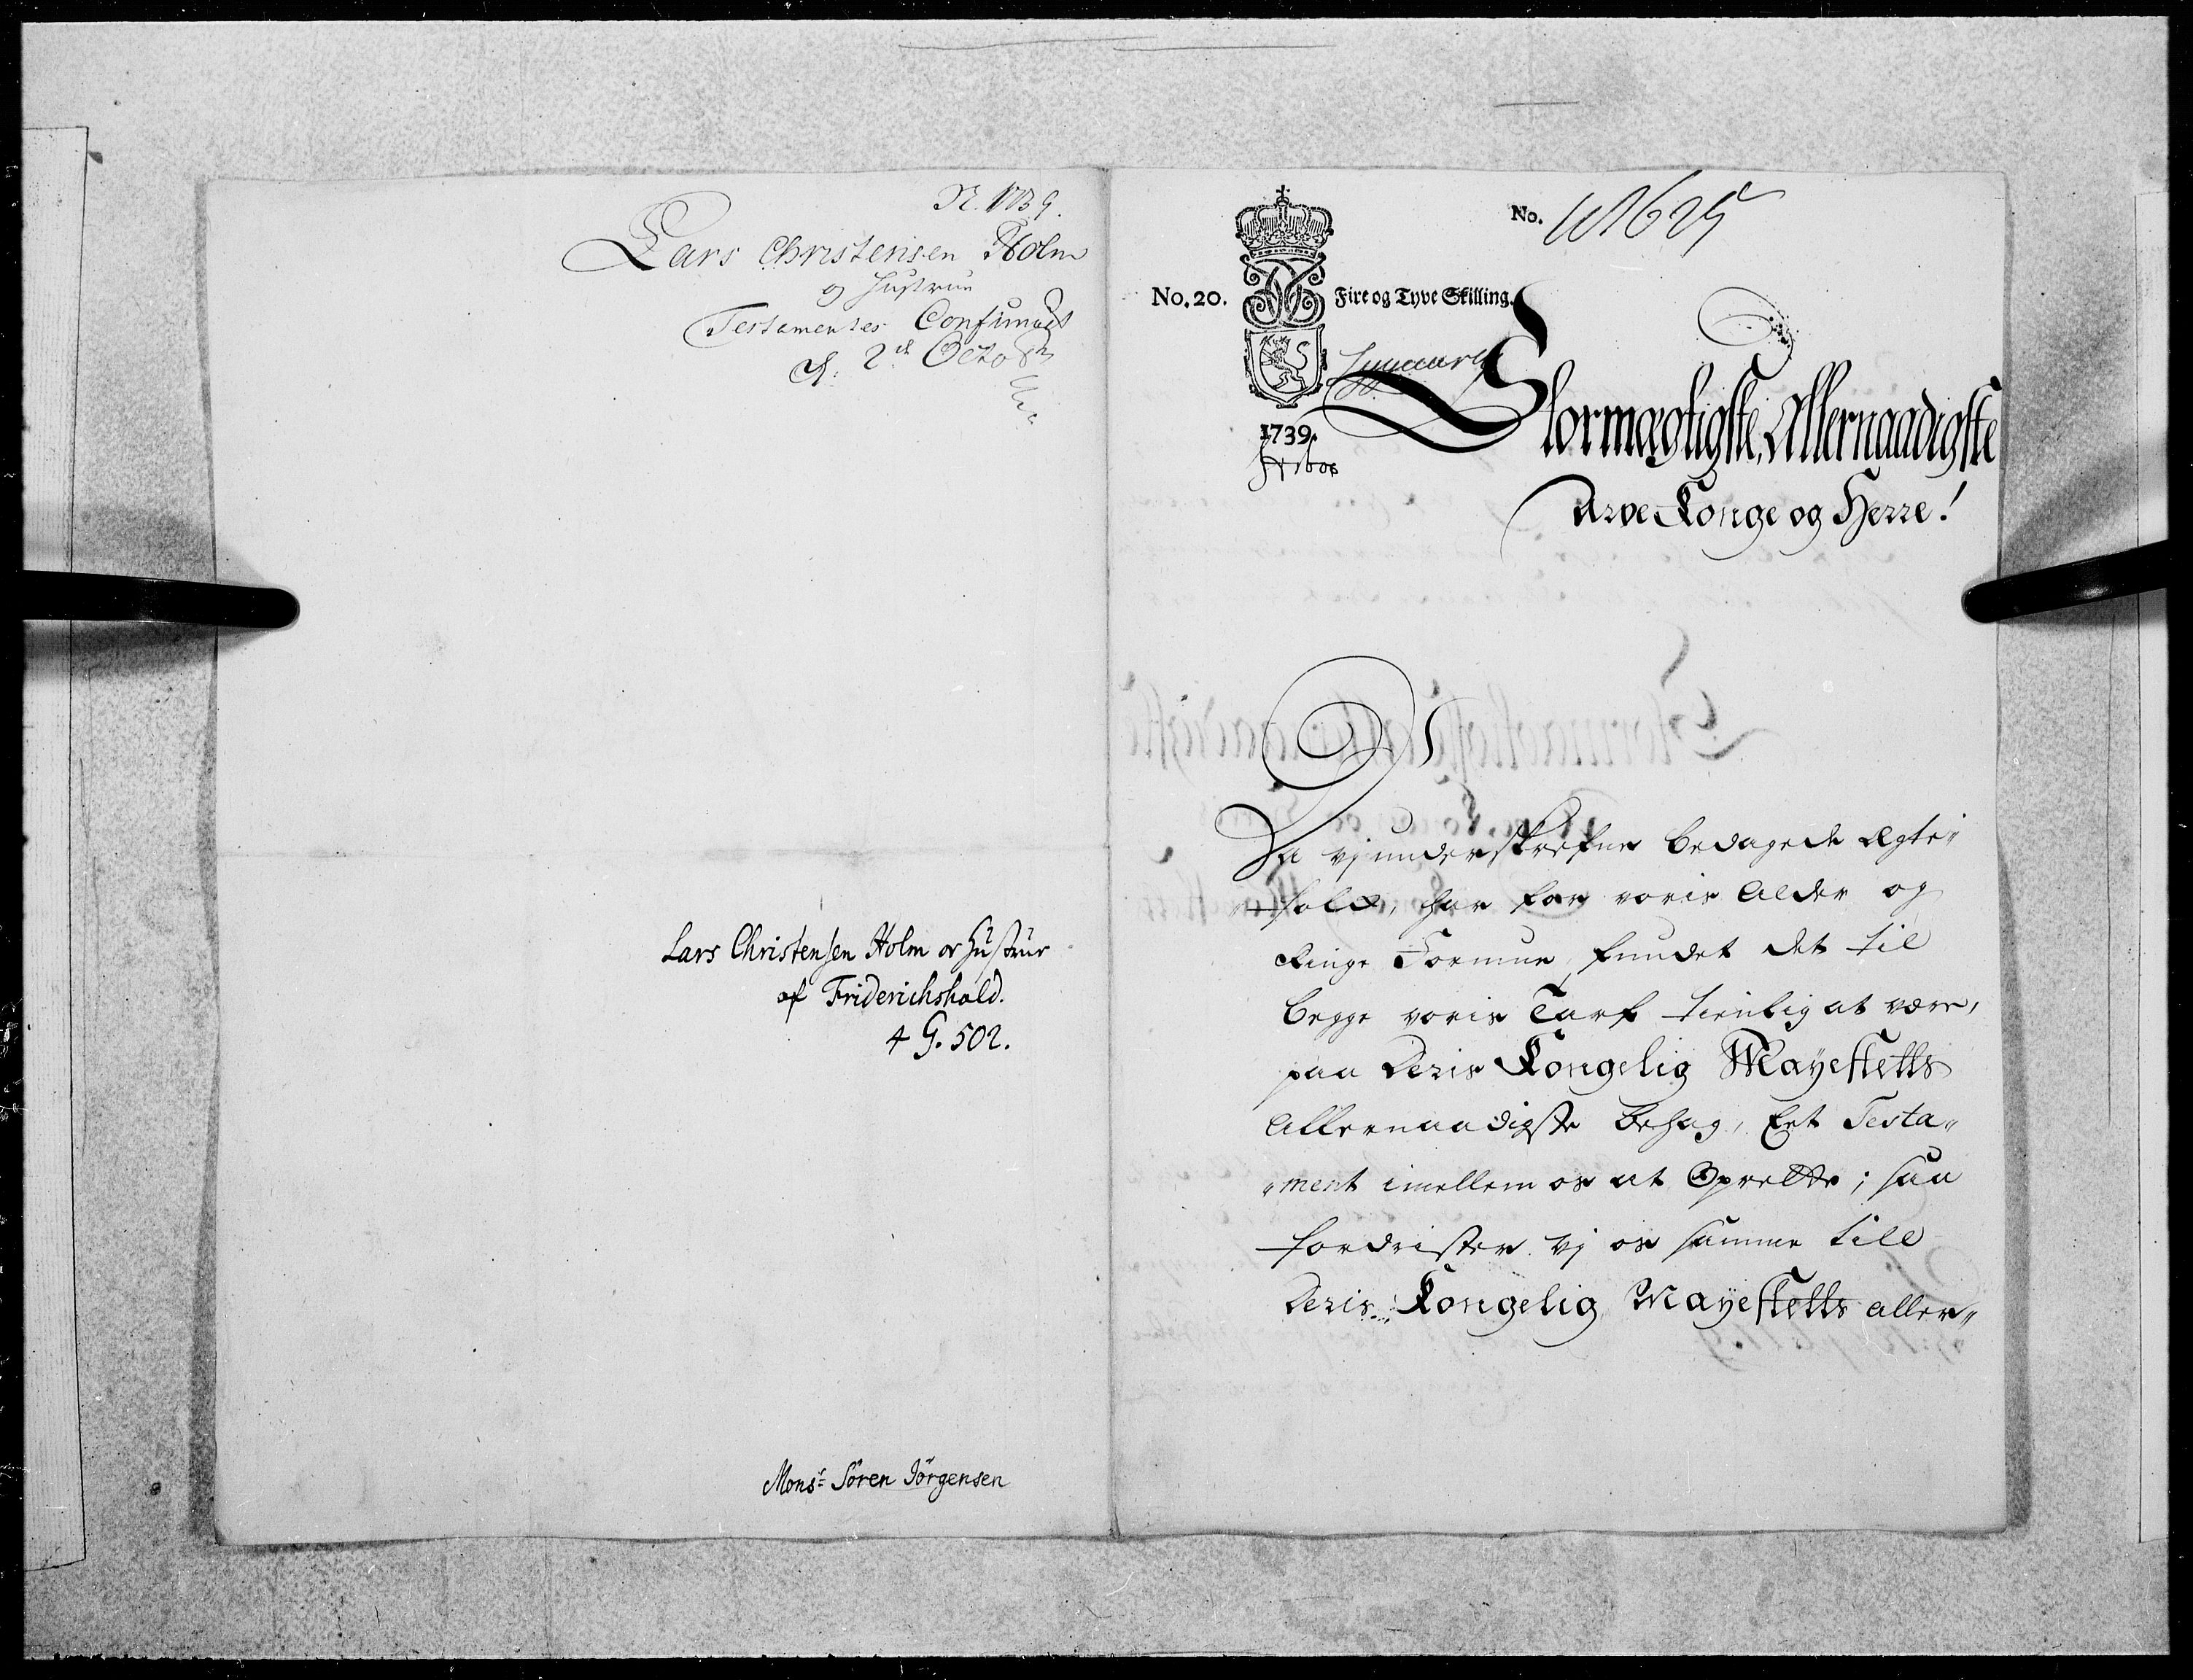 N. 1739.
Lars Christensen Holm
og Hustrue
Testamentes Confirmads
d. 2d Octobr
Lars Christensen Holm og Hustrue
af Friderichshald.
4 G. 502.
Monsr Sören Jörgensen
No.
No. 20.
Fire og Tyve Skilling.
1739.
Stormægtigste, Allernaadigste
Arve Konge og Herre!
Da vj underskrefne bedagede Ægte„
„folk, har for voris Alder og
Ringe Formue, fundet det til
begge voris Tarf tienlig at være,
paa Deris Kongelig Mayestetts
Allernaadigste Behag, Eet Testa„
„ment imellem os at Oprette; saa
fordrister vj os samme till
Deris Kongelig Mayestetts aller„